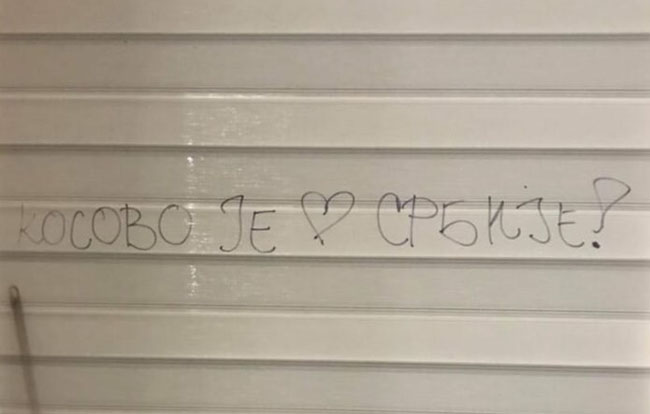 КОСОВО ЈЕ ♡ СРБИЈЕ!